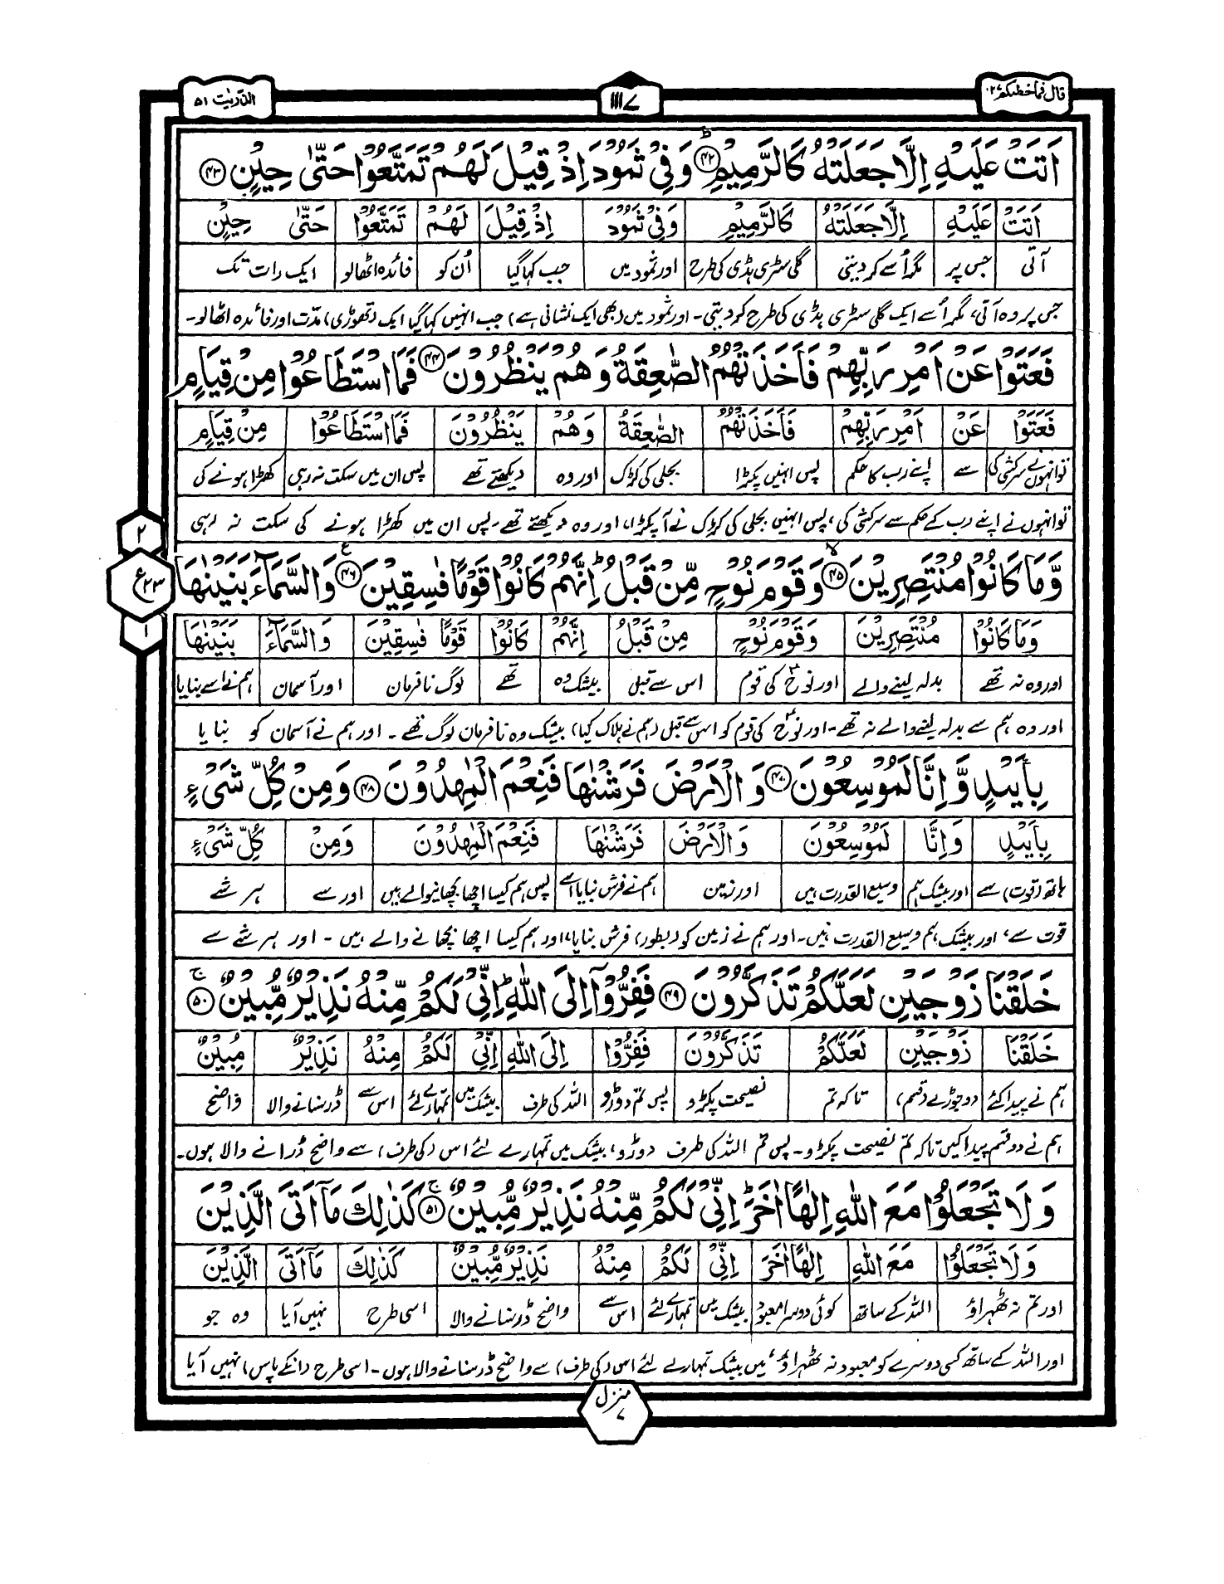 قال فما خطبكم ٢٧
١١١٧
الذّٰریٰت ٥١
اَتَتْ عَلَيْهِ اِلَّا جَعَلَتْهُ كَالرَّمِيْمِ ﴿٤٢﴾ وَفِيْ ثَمُوْدَ اِذْ قِيْلَ لَهُمْ تَمَتَّعُوْا حَتّٰى حِيْنٍ ﴿٤٣﴾
اَتَتْ عَلَيْهِ اِلَّا جَعَلَتْهُ كَالرَّمِيْمِ وَفِيْ ثَمُوْدَ اِذْ قِيْلَ لَهُمْ تَمَتَّعُوْا حَتّٰى حِيْنٍ
آتی جس پر مگر اُسے کر دیتی گلی سڑی ہڈی کی طرح اور ثمود میں جب کہا گیا اُن کو فائدہ اٹھالو ایک رات تک
جس پر وہ آتی، مگر اُسے ایک گلی سڑی ہڈی کی طرح کر دیتی۔ اور ثمود میں (بھی ایک نشانی ہے) جب انہیں کہا گیا ایک (تھوڑی) مدّت اور فائدہ اٹھالو۔
فَعَتَوْا عَنْ اَمْرِ رَبِّهِمْ فَاَخَذَتْهُمُ الصّٰعِقَةُ وَهُمْ يَنْظُرُوْنَ ﴿٤٤﴾ فَمَا اسْتَطَاعُوْا مِنْ قِيَامٍ
فَعَتَوْا عَنْ اَمْرِ رَبِّهِمْ فَاَخَذَتْهُمُ الصّٰعِقَةُ وَهُمْ يَنْظُرُوْنَ فَمَا اسْتَطَاعُوْا مِنْ قِيَامٍ
تو انہوں نے سرکشی کی سے اپنے رب کا حکم پس انہیں پکڑا بجلی کی کڑک اور وہ دیکھتے تھے پس ان میں سکت نہ رہی کھڑا ہونے کی
تو انہوں نے اپنے رب کے حکم سے سرکشی کی، پس انہیں بجلی کی کڑک نے آ پکڑا، اور وہ دیکھتے تھے۔ پس ان میں کھڑا ہونے کی سکت نہ رہی
٢
ع ٢٣
١
وَّمَا كَانُوْا مُنْتَصِرِيْنَ ﴿٤٥﴾ وَقَوْمَ نُوْحٍ مِّنْ قَبْلُ اِنَّهُمْ كَانُوْا قَوْمًا فٰسِقِيْنَ ﴿٤٦﴾ وَالسَّمَآءَ بَنَيْنٰهَا
وَمَا كَانُوْا مُنْتَصِرِيْنَ وَقَوْمَ نُوْحٍ مِنْ قَبْلُ اِنَّهُمْ كَانُوْا قَوْمًا فٰسِقِيْنَ وَالسَّمَآءَ بَنَيْنٰهَا
اور وہ نہ تھے بدلہ لینے والے اور نوحؑ کی قوم اس سے قبل بیشک وہ تھے لوگ نافرمان اور آسمان ہم نے اسے بنایا
اور وہ ہم سے بدلہ لینے والے نہ تھے۔ اور نوحؑ کی قوم کو اس سے قبل (ہم نے ہلاک کیا) بیشک وہ نافرمان لوگ تھے۔ اور ہم نے آسمان کو بنایا
بِاَيْىدٍ وَّاِنَّا لَمُوْسِعُوْنَ ﴿٤٧﴾ وَالْاَرْضَ فَرَشْنٰهَا فَنِعْمَ الْمٰهِدُوْنَ ﴿٤٨﴾ وَمِنْ كُلِّ شَيْءٍ
بِاَيْىدٍ وَاِنَّا لَمُوْسِعُوْنَ وَالْاَرْضَ فَرَشْنٰهَا فَنِعْمَ الْمٰهِدُوْنَ وَمِنْ كُلِّ شَيْءٍ
ہاتھ (قوت) سے اور بیشک ہم وسیع القدرت ہیں اور زمین ہم نے فرش بنایا اسے پس ہم کیسا اچھا بچھانیوالے ہیں اور سے ہر شے
قوت سے، اور بیشک ہم وسیع القدرت ہیں۔ اور ہم نے زمین کو (بطور) فرش بنایا، اور ہم کیسا اچھا بچھانے والے ہیں۔ اور ہر شے سے
خَلَقْنَا زَوْجَيْنِ لَعَلَّكُمْ تَذَكَّرُوْنَ ﴿٤٩﴾ فَفِرُّوْٓا اِلَى اللّٰهِ اِنِّيْ لَكُمْ مِّنْهُ نَذِيْرٌ مُّبِيْنٌ ﴿٥٠﴾
خَلَقْنَا زَوْجَيْنِ لَعَلَّكُمْ تَذَكَّرُوْنَ فَفِرُّوْا اِلَى اللّٰهِ اِنِّيْ لَكُمْ مِنْهُ نَذِيْرٌ مُبِيْنٌ
ہم نے پیدا کئے دو جوڑے (قسم) تا کہ تم نصیحت پکڑو پس تم دوڑو اللہ کی طرف بیشک میں تمہارے لئے اس سے ڈر سنانے والا واضح
ہم نے دو قسم پیدا کیں تاکہ تم نصیحت پکڑو۔ پس تم اللہ کی طرف دوڑو، بیشک میں تمہارے لئے اس (کی طرف) سے واضح ڈرانے والا ہوں۔
وَلَا تَجْعَلُوْا مَعَ اللّٰهِ اِلٰهًا اٰخَرَ اِنِّيْ لَكُمْ مِّنْهُ نَذِيْرٌ مُّبِيْنٌ ﴿٥١﴾ كَذٰلِكَ مَآ اَتَى الَّذِيْنَ
وَلَا تَجْعَلُوْا مَعَ اللّٰهِ اِلٰهًا اٰخَرَ اِنِّيْ لَكُمْ مِنْهُ نَذِيْرٌ مُّبِيْنٌ كَذٰلِكَ مَآ اَتَى الَّذِيْنَ
اور تم نہ ٹھہراؤ اللہ کے ساتھ کوئی دوسرا معبود بیشک میں تمہارے لئے اس سے واضح ڈر سنانے والا اسی طرح نہیں آیا وہ جو
اور اللہ کے ساتھ کسی دوسرے کو معبود نہ ٹھہراؤ، میں بیشک تمہارے لئے اس (کی طرف) سے واضح ڈر سنانے والا ہوں۔ اسی طرح (انکے پاس) نہیں آیا
منزل ٧